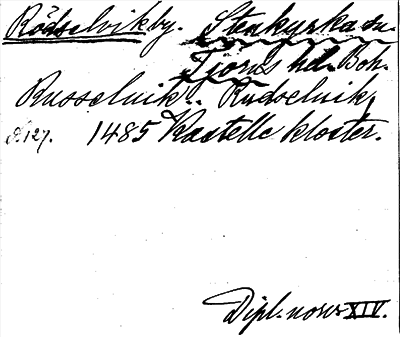 Rödselvik by. Stenkyrka sn.
Tjörns hd. Boh.
Russelvik.. Rudselvik,
s. 127. 1485 Kastelle kloster.
Dipl. norv. XIV.